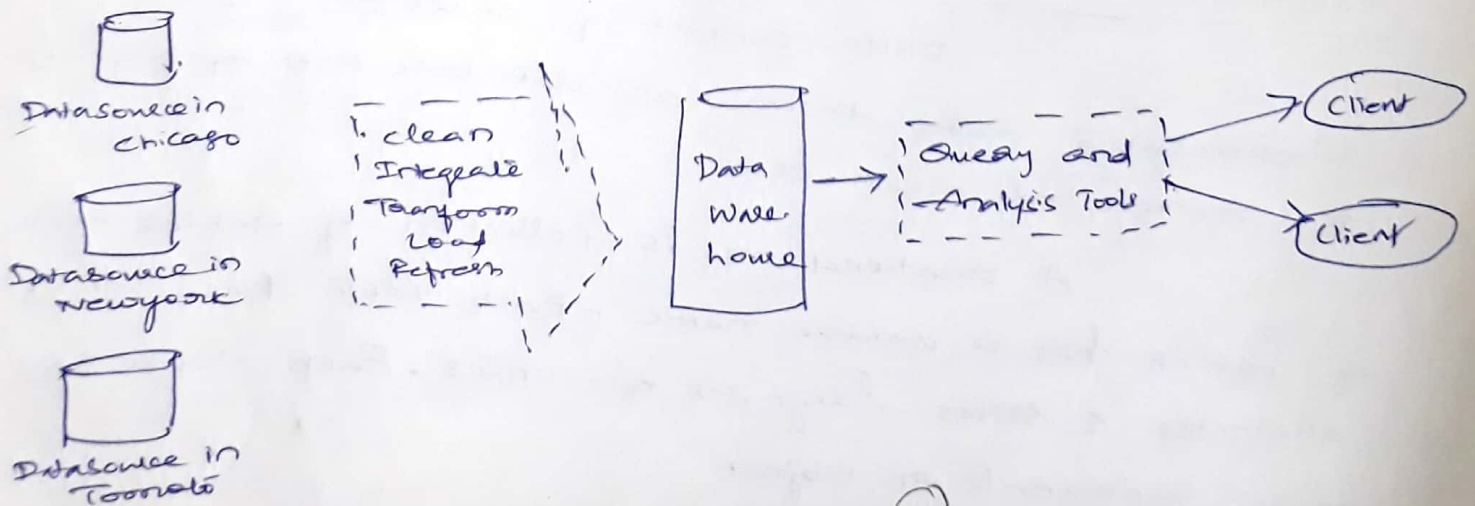 Datasource in
Chicago
Datasource in
Newyork
Datasource in
Toronto
Clean
Integrate
Tranform
Load
Refresh
Data
Ware
house
Query and
Analysis Tools
Client
Client